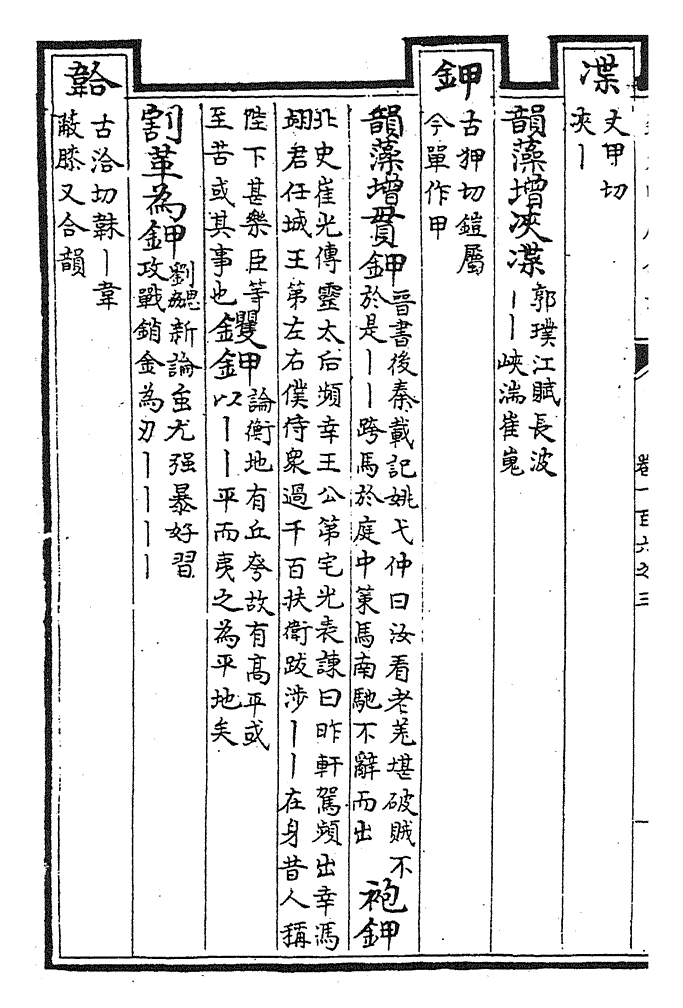 渫
丈甲切
浹丨
韻藻增浹渫
郭璞江賦長波
丨丨峽湍崔嵬
鉀
古狎切鎧屬
今單作甲
韻藻增貫鉀
晉書後秦載記姚弋仲曰汝看老羌堪破賊不
於是丨丨跨馬於庭中策馬南馳不辭而出
袍鉀
北史崔光傳靈太后頻幸王公第宅光表諫曰昨軒駕頻出幸馮
翊君任城王第左右僕侍衆過千百扶衛跋涉丨丨在身昔人稱
陛下甚樂臣等
至苦或其事也
钁鉀
論衡地有丘夸故有高平或
以丨丨平而夷之為平地矣
割革為鉀
劉勰新論蚩尤强暴好習
攻戰銷金為刃丨丨丨丨
韐
古洽切韎丨韋
蔽膝又合韻
卷一百六之三